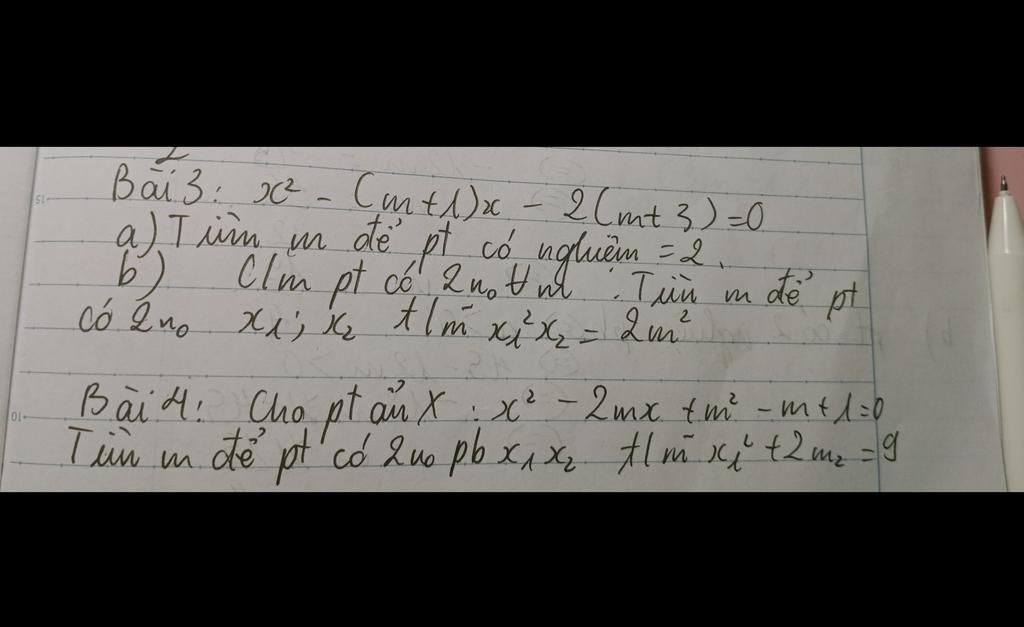 Bài 3: x² - (m+1)x - 2(m+3)=0
a) Tìm m để pt có nghiệm = 2.
b) C/m pt có 2n₀ ∀m. Tìm m để pt
có 2n₀ x₁; x₂ t/m x₁²x₂ = 2m²
Bài 4: Cho pt ẩn X: x² - 2mx + m² - m + 1=0
Tìm m để pt có 2n₀ pb x₁ x₂ t/m x₁² + 2m₂ = 9